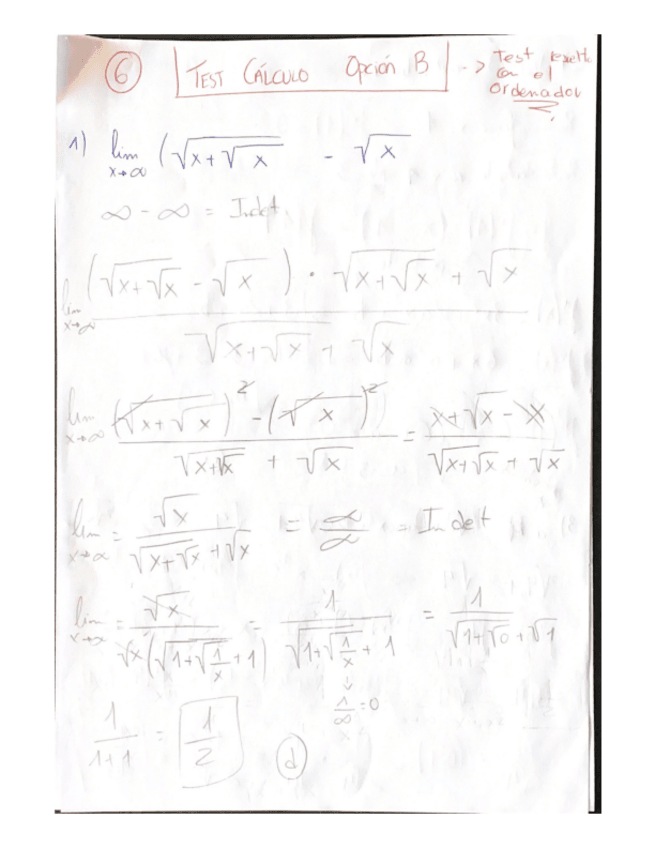 6 TEST CÁLCULO Opción B -> Test
con el
ordenador
1) lim x→∞ (√(x+√x) - √x
∞ - ∞ = Indet.
lim x→∞ (√(x+√x) - √x) · √(x+√x) + √x / √(x+√x) + √x
lim x→∞ (√(x+√x))² - (√x)² / √(x+√x) + √x = x+√x-x / √(x+√x) + √x
lim x→∞ = √x / √(x+√x) + √x = ∞/∞ = Indet
lim x→∞ = √x / √x(√(1+√(1/x)) + 1) = 1 / √(1+√(1/x)) + 1 = 1 / √(1+√0) + √1
↓
1/∞ = 0
1/1+1 = 1/2 d